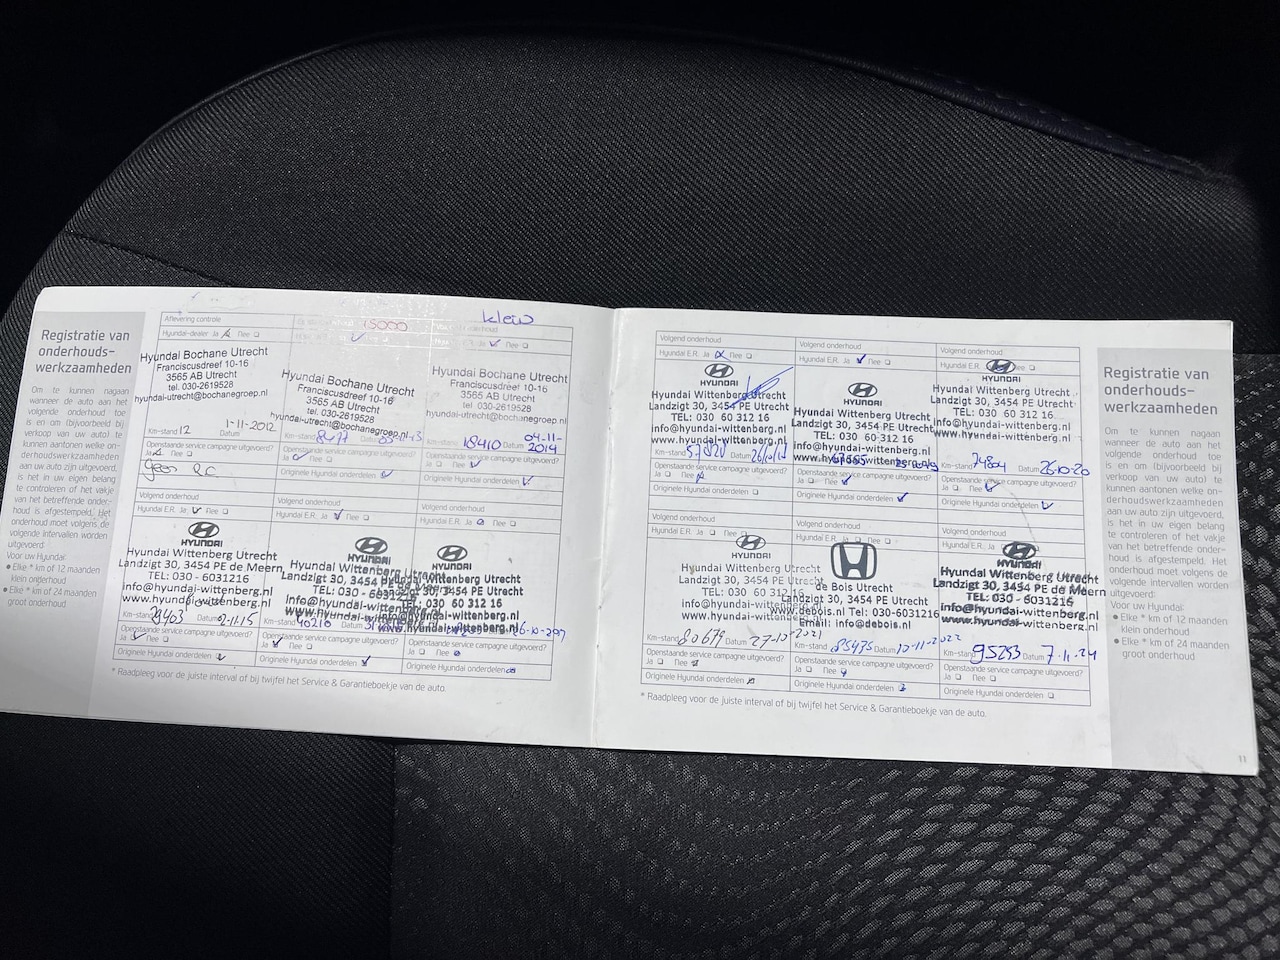 Registratie van
onderhouds-
werkzaamheden
Om te kunnen nagaan
wanneer de auto aan het
volgende onderhoud toe
is en om (bijvoorbeeld bij
verkoop van uw auto) te
kunnen aantonen welke on-
derhoudswerkzaamheden
aan uw auto zijn uitgevoerd,
is het in uw eigen belang
te controleren of het vakje
van het betreffende onder-
houd is afgestempeld. Het
onderhoud moet volgens de
volgende intervallen worden
uitgevoerd:
Voor uw Hyundai:
Elke * km of 12 maanden
klein onderhoud
Elke * km of 24 maanden
groot onderhoud
Aflevering controle
Hyundai-dealer Ja Nee
Hyundai Bochane Utrecht
Franciscusdreef 10-16
3565 AB Utrecht
tel. 030-2619528
hyundai-utrecht@bochanegroep.nl
Km-stand 12 Datum 1-11-2012
Openstaande service campagne uitgevoerd?
Ja Nee
geen RC
15000
Hyundai Bochane Utrecht
Franciscusdreef 10-16
3565 AB Utrecht
tel. 030-2619528
hyundai-utrecht@bochanegroep.nl
Km-stand 8477 Datum
Openstaande service campagne uitgevoerd?
Ja Nee
Originele Hyundai onderdelen
klein
onderhoud
Ja Nee
Hyundai Bochane Utrecht
Franciscusdreef 10-16
3565 AB Utrecht
tel. 030-2619528
hyundai-utrecht@bochanegroep.nl
Km-stand 18410 Datum 04-11-2014
Openstaande service campagne uitgevoerd?
Ja Nee
Originele Hyundai onderdelen
Volgend onderhoud
Hyundai E.R. Ja Nee
HYUNDAI
Hyundai Wittenberg Utrecht
Landzigt 30, 3454 PE de Meern
TEL: 030 - 6031216
info@hyundai-wittenberg.nl
www.hyundai-wittenberg.nl
Km-stand Datum 2-11-15
Openstaande service campagne uitgevoerd?
Ja Nee
Originele Hyundai onderdelen
Volgend onderhoud
Hyundai E.R. Ja Nee
HYUNDAI
Hyundai Wittenberg Utrecht
Landzigt 30, 3454 PE de Meern
TEL: 030 - 6031216
info@hyundai-wittenberg.nl
www.hyundai-wittenberg.nl
Km-stand 40210 Datum
Openstaande service campagne uitgevoerd?
Ja Nee
Originele Hyundai onderdelen
Volgend onderhoud
Hyundai E.R. Ja Nee
HYUNDAI
Hyundai Wittenberg Utrecht
Landzigt 30, 3454 PE Utrecht
TEL: 030 60 312 16
info@hyundai-wittenberg.nl
www.hyundai-wittenberg.nl
16-10-2017
Openstaande service campagne uitgevoerd?
Ja Nee
Originele Hyundai onderdelen
* Raadpleeg voor de juiste interval of bij twijfel het Service & Garantieboekje van de auto.
Volgend onderhoud
Hyundai E.R. Ja Nee
HYUNDAI
Hyundai Wittenberg Utrecht
Landzigt 30, 3454 PE Utrecht
TEL: 030 60 312 16
info@hyundai-wittenberg.nl
www.hyundai-wittenberg.nl
Km-stand 57420 Datum
Openstaande service campagne uitgevoerd?
Ja Nee
Originele Hyundai onderdelen
Volgend onderhoud
Hyundai E.R. Ja Nee
HYUNDAI
Hyundai Wittenberg Utrecht
Landzigt 30, 3454 PE Utrecht
TEL: 030 60 312 16
info@hyundai-wittenberg.nl
www.hyundai-wittenberg.nl
Openstaande service campagne uitgevoerd?
Ja Nee
Originele Hyundai onderdelen
Volgend onderhoud
Hyundai E.R.
HYUNDAI
Hyundai Wittenberg Utrecht
Landzigt 30, 3454 PE Utrecht
TEL: 030 60 312 16
info@hyundai-wittenberg.nl
www.hyundai-wittenberg.nl
Km-stand 74804 Datum 26-10-20
Openstaande service campagne uitgevoerd?
Ja Nee
Originele Hyundai onderdelen
Volgend onderhoud
Hyundai E.R. Ja Nee
HYUNDAI
Hyundai Wittenberg Utrecht
Landzigt 30, 3454 PE Utrecht
TEL: 030 60 312 16
info@hyundai-wittenberg.nl
www.hyundai-wittenberg.nl
Km-stand 80679 Datum 27-10-2021
Openstaande service campagne uitgevoerd?
Ja Nee
Originele Hyundai onderdelen
Volgend onderhoud
Hyundai E.R. Ja Nee
de Bois Utrecht
Landzigt 30, 3454 PE Utrecht
www.debois.nl Tel: 030-6031216
Email: info@debois.nl
Km-stand 85435 Datum 10-11-2022
Openstaande service campagne uitgevoerd?
Ja Nee
Originele Hyundai onderdelen
Volgend onderhoud
Hyundai E.R. Ja Nee
HYUNDAI
Hyundai Wittenberg Utrecht
Landzigt 30, 3454 PE de Meern
TEL: 030 - 6031216
info@hyundai-wittenberg.nl
www.hyundai-wittenberg.nl
Km-stand 95253 Datum 7.11.24
Openstaande service campagne uitgevoerd?
Ja Nee
Originele Hyundai onderdelen
* Raadpleeg voor de juiste interval of bij twijfel het Service & Garantieboekje van de auto.
Registratie van
onderhouds-
werkzaamheden
Om te kunnen nagaan
wanneer de auto aan het
volgende onderhoud toe
is en om (bijvoorbeeld bij
verkoop van uw auto) te
kunnen aantonen welke on-
derhoudswerkzaamheden
aan uw auto zijn uitgevoerd,
is het in uw eigen belang
te controleren of het vakje
van het betreffende onder-
houd is afgestempeld. Het
onderhoud moet volgens de
volgende intervallen worden
uitgevoerd:
Voor uw Hyundai:
Elke * km of 12 maanden
klein onderhoud
Elke * km of 24 maanden
groot onderhoud
11